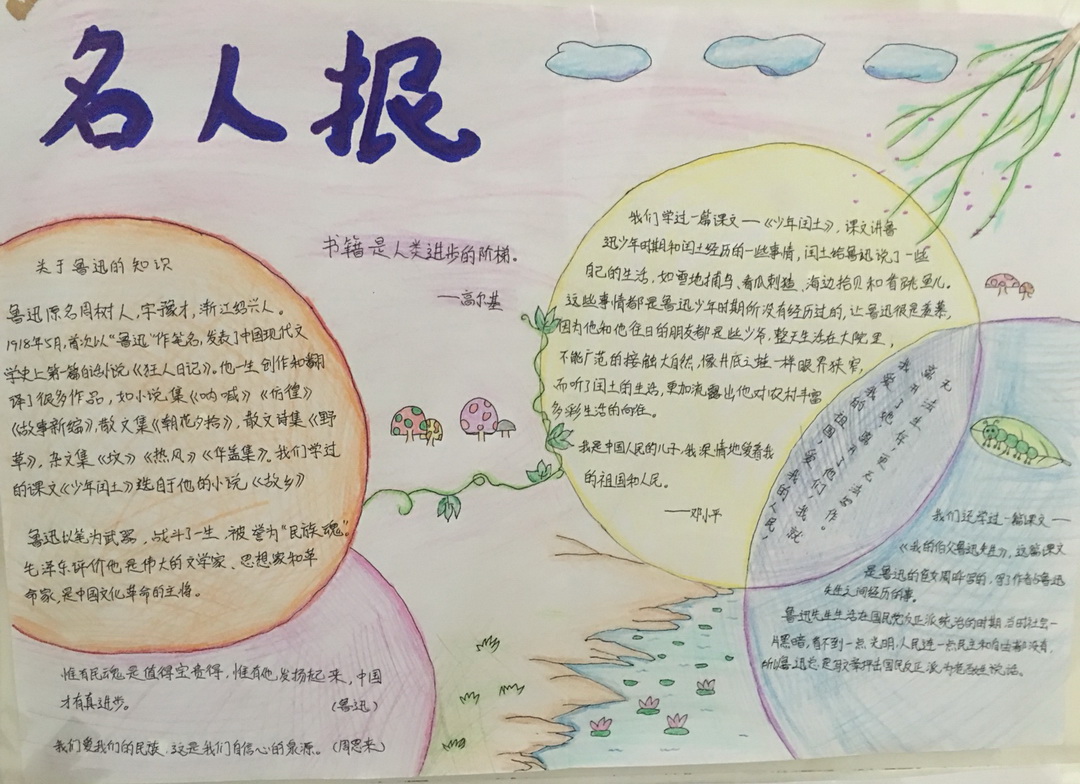 名人报
书籍是人类进步的阶梯。
——高尔基
关于鲁迅的知识
鲁迅原名周树人,字豫才,浙江绍兴人。
1918年5月,首次以“鲁迅”作笔名,发表了中国现代文
学史上第一篇白话小说《狂人日记》。他一生创作和翻
译了很多作品,如小说集《呐喊》《彷徨》
《故事新编》,散文集《朝花夕拾》,散文诗集《野
草》,杂文集《坟》《热风》《华盖集》。我们学过
的课文《少年闰土》选自于他的小说《故乡》
鲁迅以笔为武器,战斗了一生,被誉为“民族魂”
毛泽东评价他是伟大的文学家、思想家和革
命家,是中国文化革命的主将。
惟有民魂是值得宝贵得,惟有他发扬起来,中国
才有真进步。 (鲁迅)
我们爱我们的民族,这是我们自信心的泉源。(周恩来)
我们学过一篇课文——《少年闰土》,课文讲鲁
迅少年时期和闰土经历的一些事情,闰土给鲁迅说了一些
自己的生活,如雪地捕鸟、看瓜刺猹、海边拾贝和看跳鱼儿。
这些事情都是鲁迅少年时期所没有经历过的,让鲁迅很是羡慕,
因为他和他往日的朋友都是些少爷,整天生活在大院里,
不能广范的接触大自然,像井底之蛙一样眼界狭窄,
而听了闰土的生活,更加流露出他对农村丰富
多彩生活的向往。
我是中国人民的儿子,我深情地爱着我
的祖国和人民。
——邓小平
我爱我的祖国,爱我的人民,
离开了她,离开了他们,我就
无法生存,更无法写作。
我们还学过一篇课文——
《我的伯父鲁迅先生》,这篇课文
是鲁迅的侄女周晔写的,写了作者与鲁迅
先生之间经历的事。
鲁迅先生生活在国民党反正派统治的时期,当时社会一
片黑暗,看不到一点光明,人民连一点民主和自由都没有,